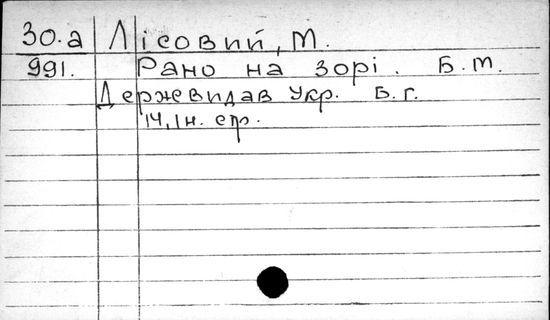 30.а Лісовий, М.
991. Рано на зорі. Б.м.
Держевидав Укр. Б.г.
14, 1н. стр.